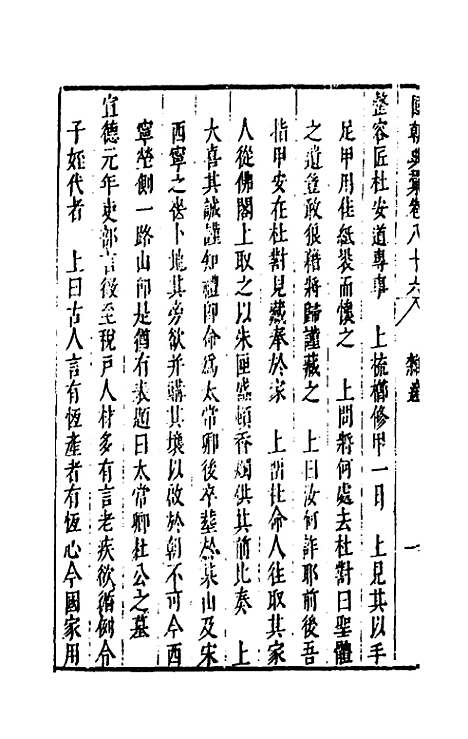 國朝典彙卷八十六 雜選 一
整容匠杜安道專事 上梳櫛修甲一日 上見其以手
足甲用佳紙裝而懷之 上問將何處去杜對曰聖體
之遺豈敢狠藉將歸謹藏之 上曰汝何詐耶前後吾
指甲安在杜對見藏奉於家 上留杜命人往取其家
人從佛閣上取之以朱匣盛頓香燭供其前比奏 上
大喜其誠謹知禮即命爲太常卿後卒葬於某山及宋
西寧之喪卜地其旁欲并購其壤以啟於朝不可今西
寧塋側一路山即是猶有表題曰太常卿杜公之墓
宣德元年吏部言徵至稅戸人材多有言老疾欲循例令
子姪代者 上曰古人言有恆產者有恆心今國家用